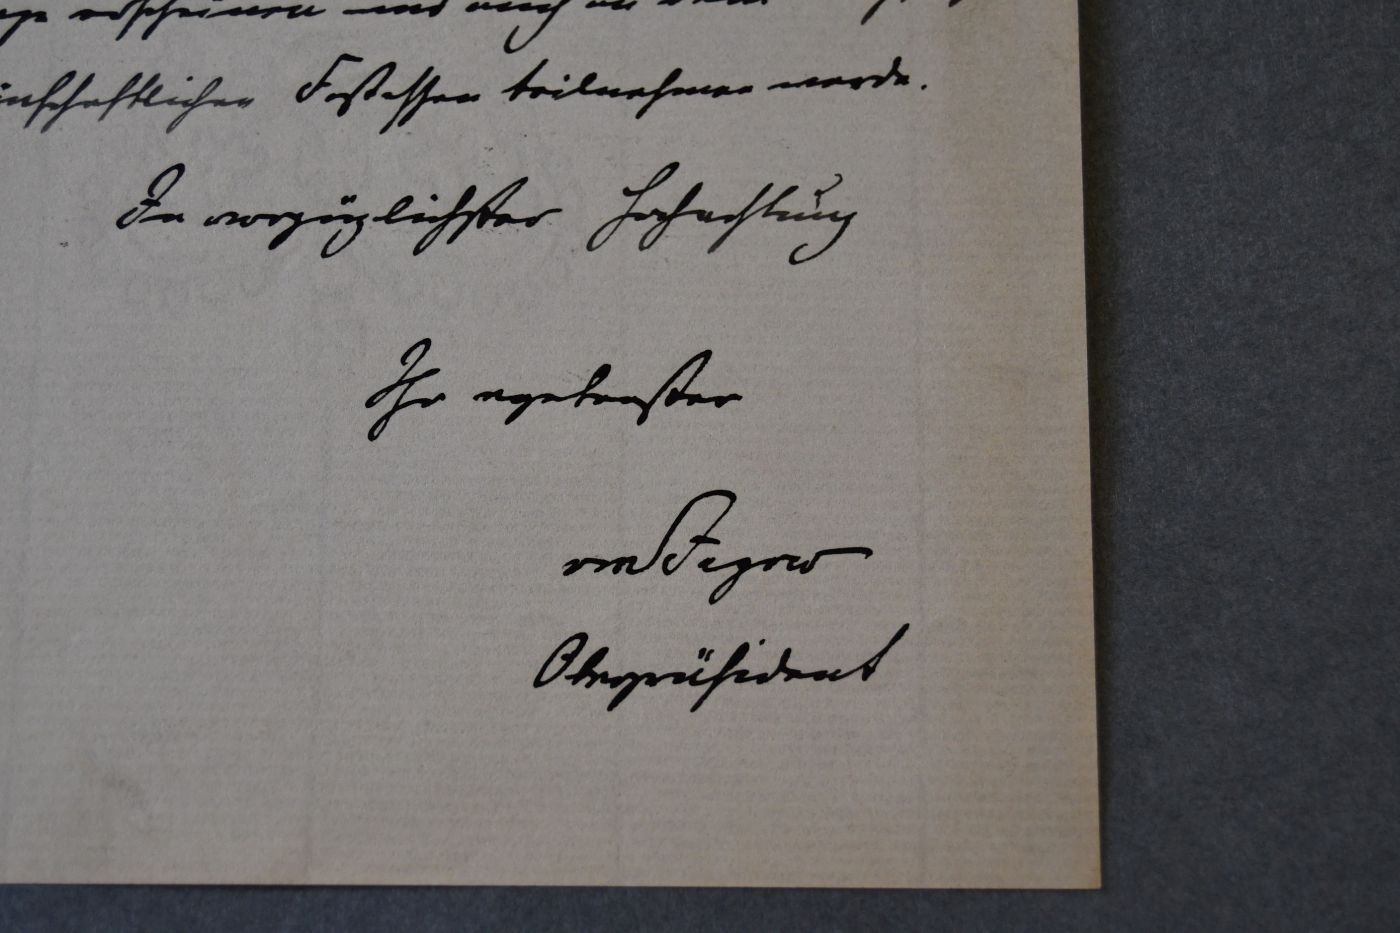 erscheinen und auch an dem
Festessen teilnehmen werde.
In vorzüglichster Hochachtung
Ihr ergebenster
von Jagow
Oberpräsident